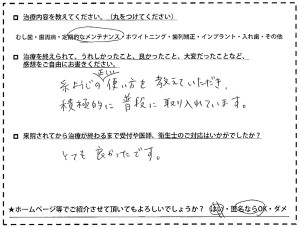 □ 治療内容を教えてください。(丸をつけてください)
むし歯・歯周病・定期的なメンテナンス・ホワイトニング・歯列矯正・インプラント・入れ歯・その他
□ 治療を終えられて、うれしかったこと、良かったこと、大変だったことなど、
感想をご自由にお書きください。
正しい
糸ようじの使い方を教えていただき、
積極的に普段に取り入れています。
□ 来院されてから治療が終わるまで受付や医師、衛生士のご対応はいかがでしたか?
とても良かったです。
★ホームページ等でご紹介させて頂いてもよろしいでしょうか? はい・匿名ならOK・ダメ